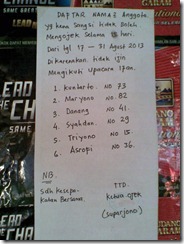 DAFTAR NAMA² Anggota
yg kena sangsi tidak Boleh
Mengojek Selama 15 hari.
Dari tgl 17 — 31 Agust 2013
Dikarenakan tidak ijin
Mengikuti Upacara 17an.
1. Kuntarto. NO 73
2. Maryono NO 82
3. Daneng NO 41.
4. Syahdan NO 29
5. Triyono NO 15.
6. Asropi NO 36.
NB.
Sdh kesepa-
katan Bersama
TTD.
Ketua Ojek
(Suparjono)
LEAD
THE
CHA